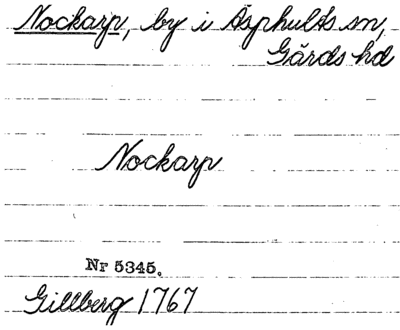 Nockarp, by i Äsphults sn,
Gärds hd
Nockarp
Nr 5345.
Gillberg 1767